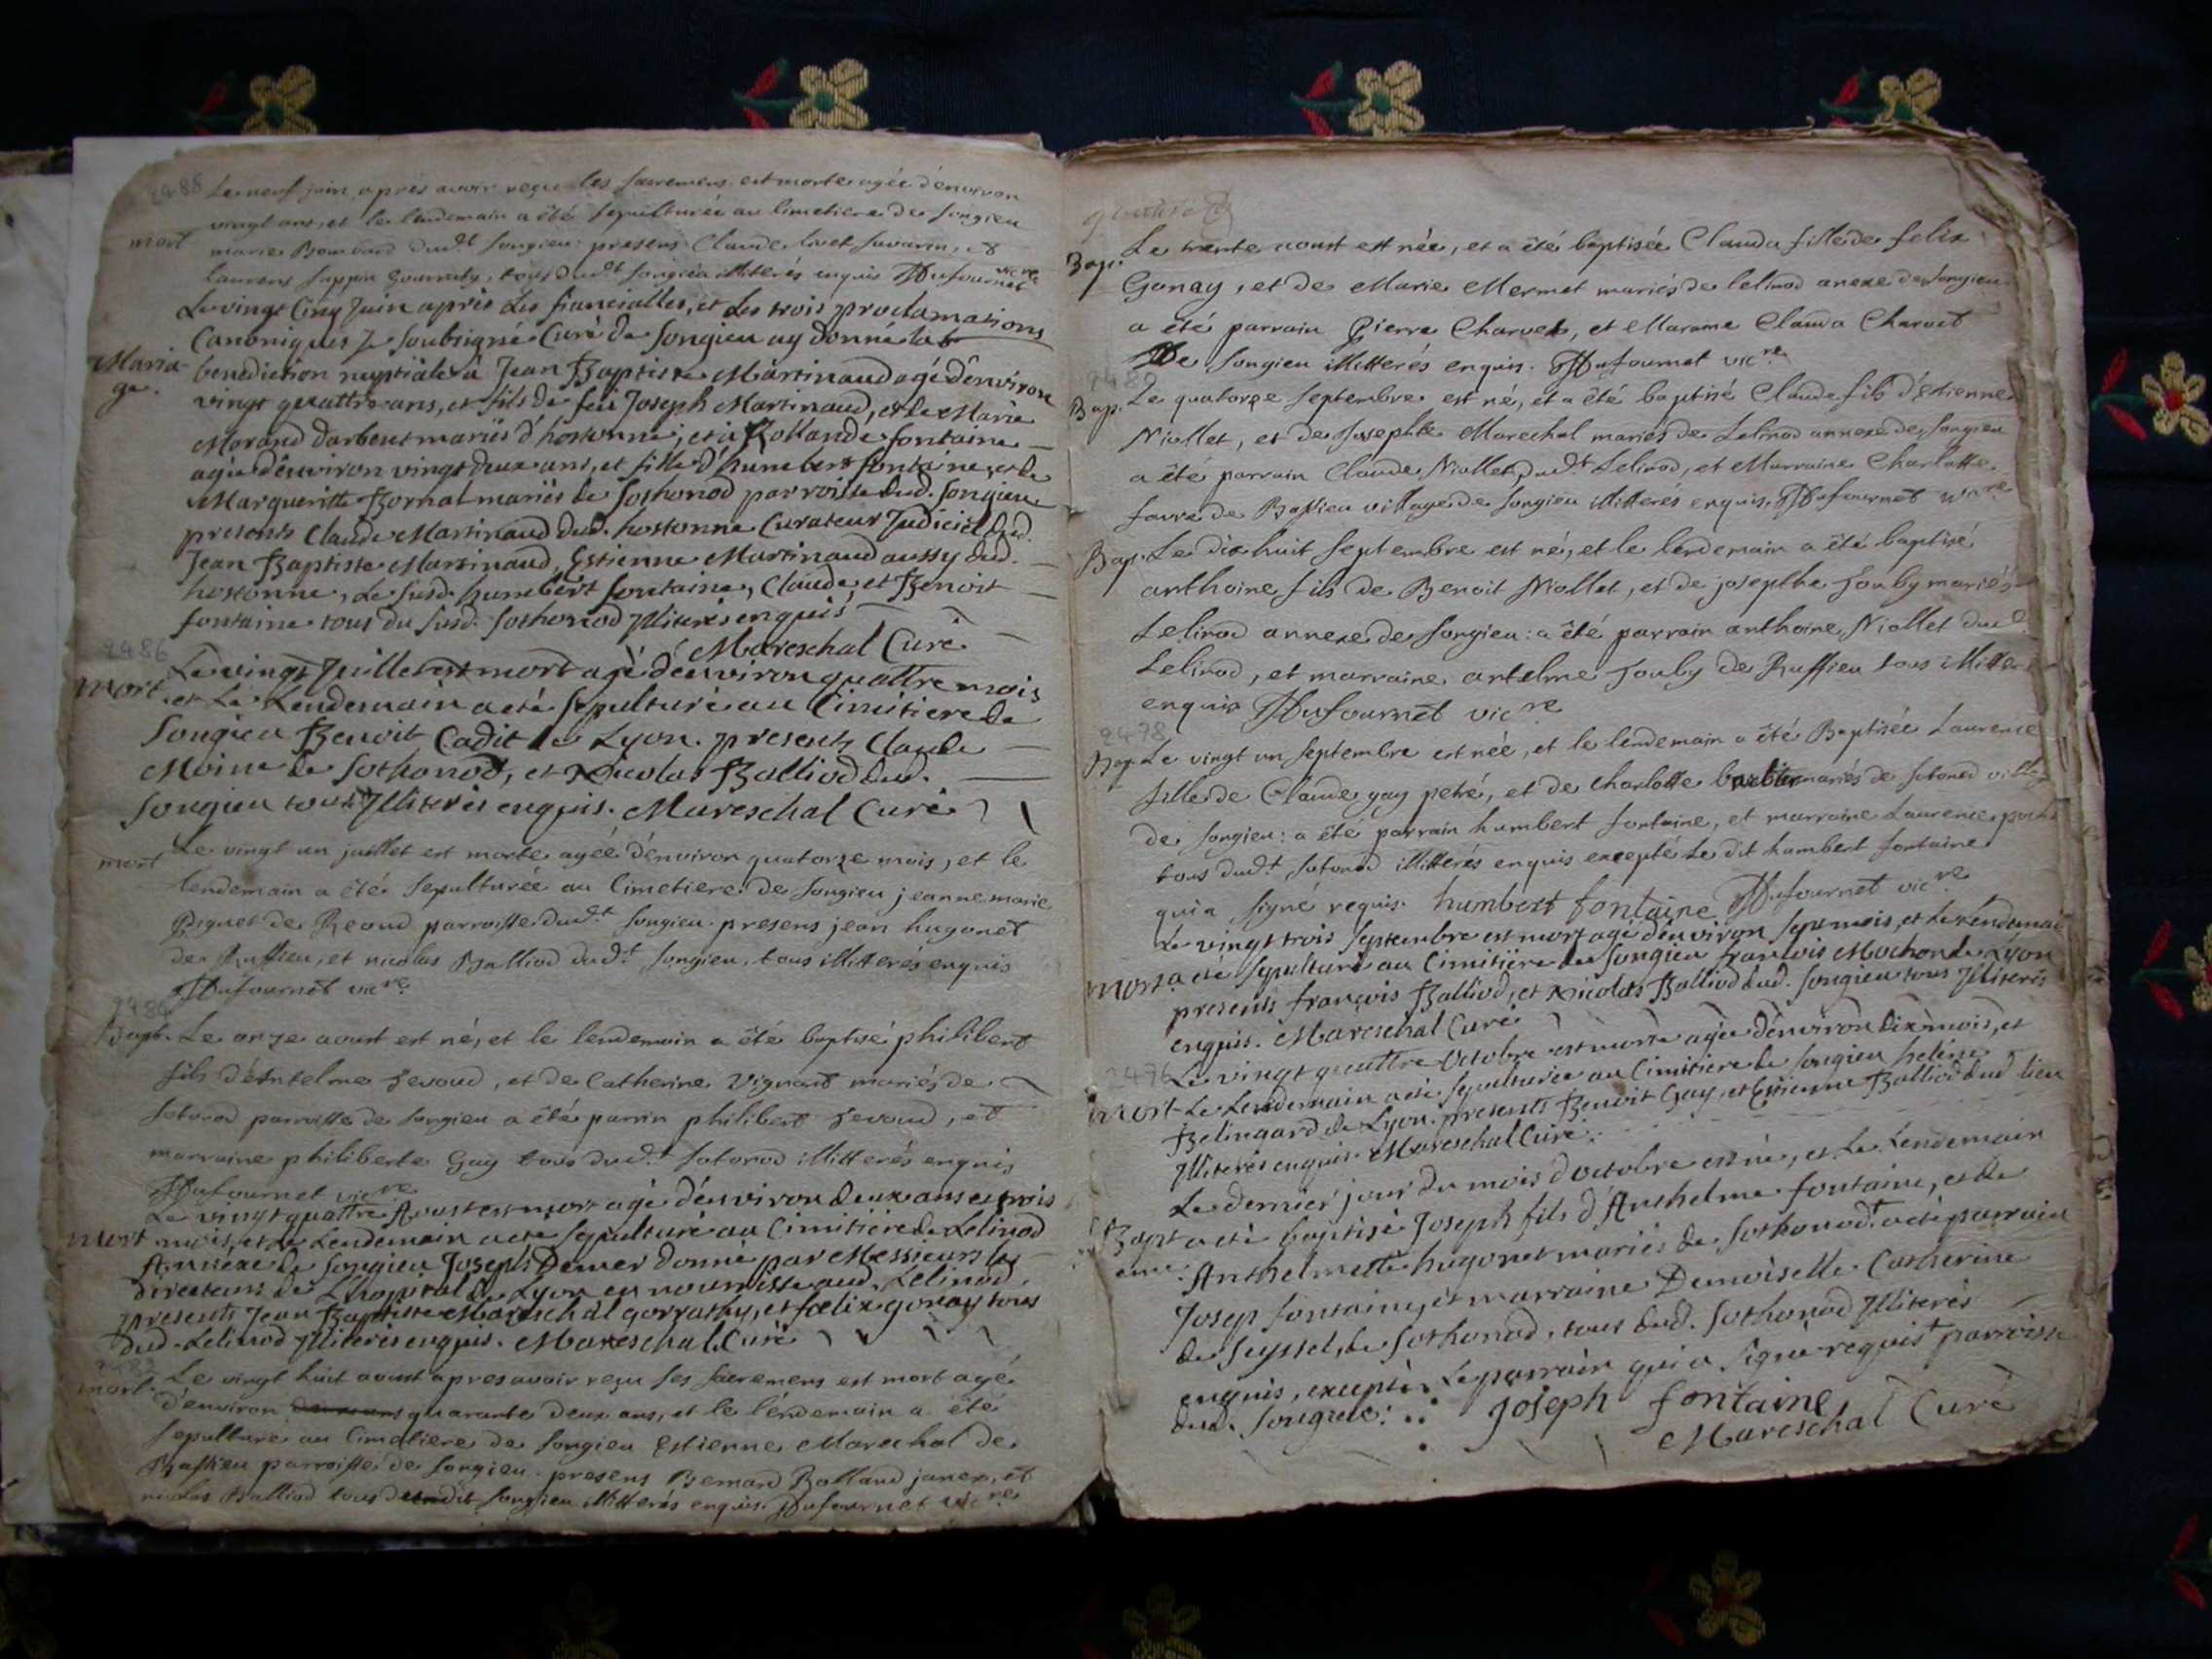 2488
Le neuf juin après avoir reçu les sacremens est morte agée d'environ
vingt ans, et le lendemain a été sepulturée au cimetiere de songieu
mort marie Bombard dud.t songieu: presens Claude livet savarin, et
laurens sappin gourraty, tous dud.t songieu illiterés enquis Dufournet vic.re
Le vingt Cinq Juin après Les fiancialles, et Les trois proclamations
Canoniques Je soubsigné Curé de songieu ay donné la
Maria- benediction nuptiale à Jean Baptiste Martinaud agé d'environ
ge. vingt quattre ans, et fils de feu Joseph Martinaud, et de Marie
Morand darbent mariés d'hostonne; et à Rollande fontaine
agée d'environ vingt deux ans, et fille d'humbert fontaine, et de
Margueritte Bornal mariés de sothonod parroisse dud. songieu
presents Claude Martinaud dud. hostonne Curateur Judiciel dud.
Jean Baptiste Martinaud, Estienne Martinaud aussy dud.
hostonne, Le susd. humbert fontaine, Claude, et Benoit
fontaine tous du susd. sothonod Jlliterés enquis
Mareschal Curé
2486
Le vingt Juillet est mort agé d'environ quattre mois
mort et Le Lendemain a eté sepulturé au Cimitiere de
songieu Benoit Cadit de Lyon. presents Claude
Moine de sothonod, et Nicolas Balliod dud.
songieu tous Jlliterés enquis. Mareschal Curé
mort Le vingt un juillet est morte agéé d'environ quatorze mois, et le
lendemain a été sepulturée au Cimetiere de songieu jeanne marie
Piquet de Reoud parroisse dud.t songieu. presens jean hugonet
de Ruffieu, et nicolas Balliod dud.t songieu, tous illitterés enquis
Dufournet vic.re
2484
Bapt. Le onze aoust est né, et le lendemain a été baptisé philibert
fils d'Antelme Jevoud, et de Catherine Vignard mariés de
sotonod parroisse de songieu a été parrin philibert Jevoud, et
marraine philiberte Gay tous dud.t sotonod illitterés enquis
Dufournet vic.re
Le vingt quattre Aoust est mort agé d'environ deux ans et trois
mort mois, et Le Lendemain a eté sepulturé au Cimitiere de Lelinod
Annexe de songieu Joseph Demer donné par Messieurs les
directeurs de L'hopital de Lyon en nourrisse aud. Lelinod.
presents Jean Baptiste Mareschal gorrathy, et fœlix gonay tous
dud. Lelinod Jlliterés enquis. Mareschal Curé
2483
mort Le vingt huit aoust apres avoir reçu ses sacremens est mort agé
d'environ quarante deux ans, et le lendemain a été
sepulturé au Cimetiere de songieu Estienne Marechal de
Bassieu parroisse de songieu. presens Bernard Balland janex, et
nicolas Balliod tous dudit songieu illitterés enquis. Dufournet vic.re
Bap. Le trente aoust est née, et a été baptisée Clauda fille de felix
Gonay, et de Marie Mermet mariés de lelinod anexe de songieu
a été parrain Pierre Charvet, et Maraine Clauda Charvet
De songieu illitterés enquis. Dufournet vic.re
2480
Bap. Le quatorze septembre est né, et a été baptisé Claude fils d'Etienne
Niollet, et de Josephte Marechal mariés de Lelinod annexe de songieu
a été parrain Claude Niollet dud.t Lelinod, et Marraine Charlotte
favre de Bassieu village de songieu illitterés enquis. Dufournet vic.re
Bap. Le dix huit septembre est né, et le lendemain a été baptisé
anthoine fils de Benoit Niollet, et de josepthe Jouby mariés
Lelinod annexe de songieu: a été parrain anthoine Niollet dud.
Lelinod, et marraine antelme Jouby de Ruffieu tous illitterés
enquis Dufournet vic.re
2478
Bap. Le vingt un septembre est née, et le lendemain a été Baptisée Laurence
fille de Claude gay peté, et de Charlotte mariés de sotonod village
de songieu: a été parrain humbert fontaine, et marraine Laurence
tous dud.t sotonod illitterés enquis excepté le dit humbert fontaine
qui a signé requis. humbert fontaine Dufournet vic.re
Le vingt trois septembre est mort agé d'environ sept mois, et Le Lendemain
mort a eté sepulturé au Cimitiere de songieu françois Mochon de Lyon
presents françois Balliod, et Nicolas Balliod dud. songieu tous Jlliterés
enquis. Mareschal Curé
2476
Le vingt quattre Octobre est morte agée d'environ dix mois, et
mort Le Lendemain a eté sepulturée au Cimitiere de songieu heleine
Belingard de Lyon. presents Benoit Gay, et Estienne Balliod dud. lieu
Jlliterés enquis. Mareschal Curé.
Le dernier jour du mois d'octobre est né, et Le Lendemain
Bapt a eté baptisé Joseph fils d'Anthelme fontaine, et de
eme. Anthelmette hugonet mariés de sothonod.† a eté parrain
Josep fontaine, et marraine Demoiselle Catherine
de seyssel, de sothonod, tous dud. sothonod Jlliterés
enquis, excepté Le parrain qui a signé requis † parroisse
dud. songieu:
Joseph fontaine
Mareschal Curé